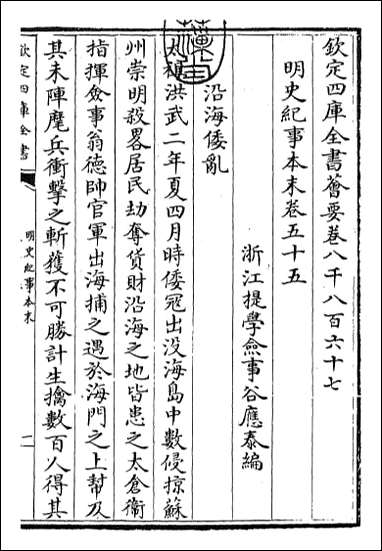 欽定四庫全書薈要卷八千八百六十七
明史紀事本末卷五十五
浙江提學僉事谷應泰編
沿海倭亂
太祖洪武二年夏四月時倭寇出没海島中數侵掠蘇
州崇明殺畧居民劫奪貨財沿海之地皆患之太倉衛
指揮僉事翁德帥官軍出海捕之遇於海門之上幫及
其未陣麾兵衝擊之斬獲不可勝計生擒數百人得其
欽定四庫全書
明史紀事本末
一